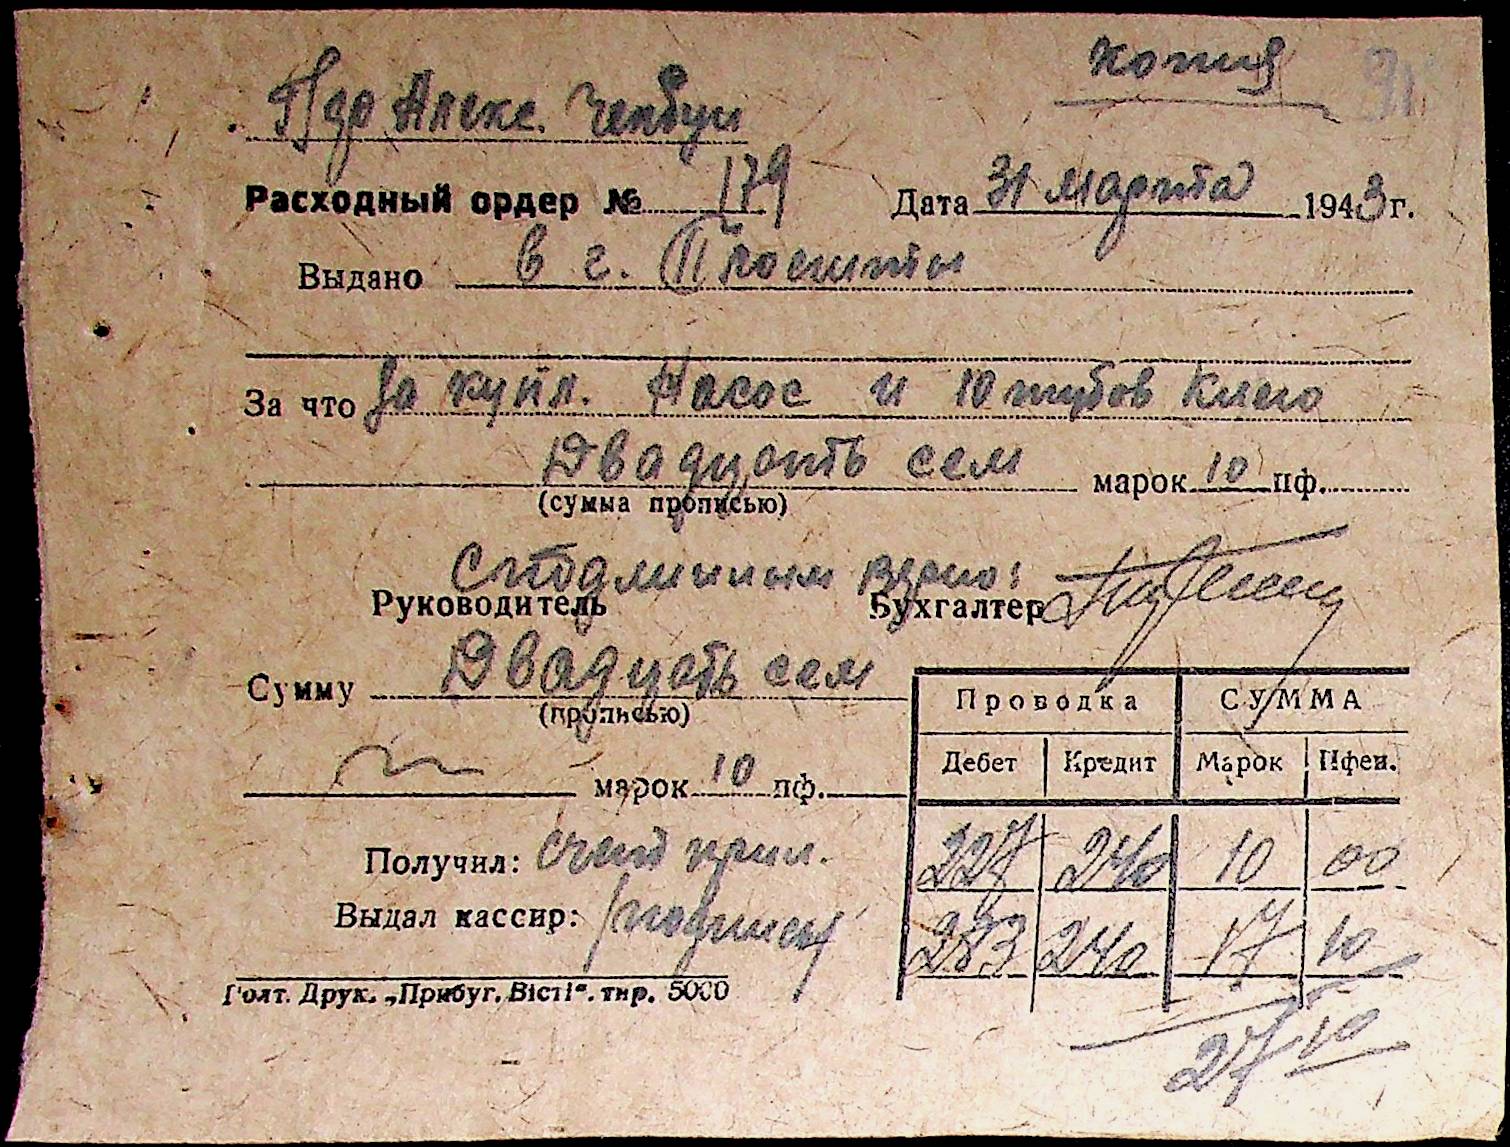 копия 31
Пдо Алекс.
Расходный ордер № 179 Дата 31 марта 1943 г.
Выдано в г. Плоешты
За что За купл. Насос и 10 тубов клею
Двадцать сем марок 10 пф.
(сумма прописью)
С подлинным верно:
Руководитель Бухгалтер
Сумму Двадцать сем
(прописью)
марок 10 пф.
Получил: счет прил.
Выдал кассир: /подпись/
Проводка СУММА
Дебет Кредит Марок Пфен.
227 240 10 00
283 240 17 10
27 10
Голт. Друк. „Прибуг. Вісті“. тир. 5000